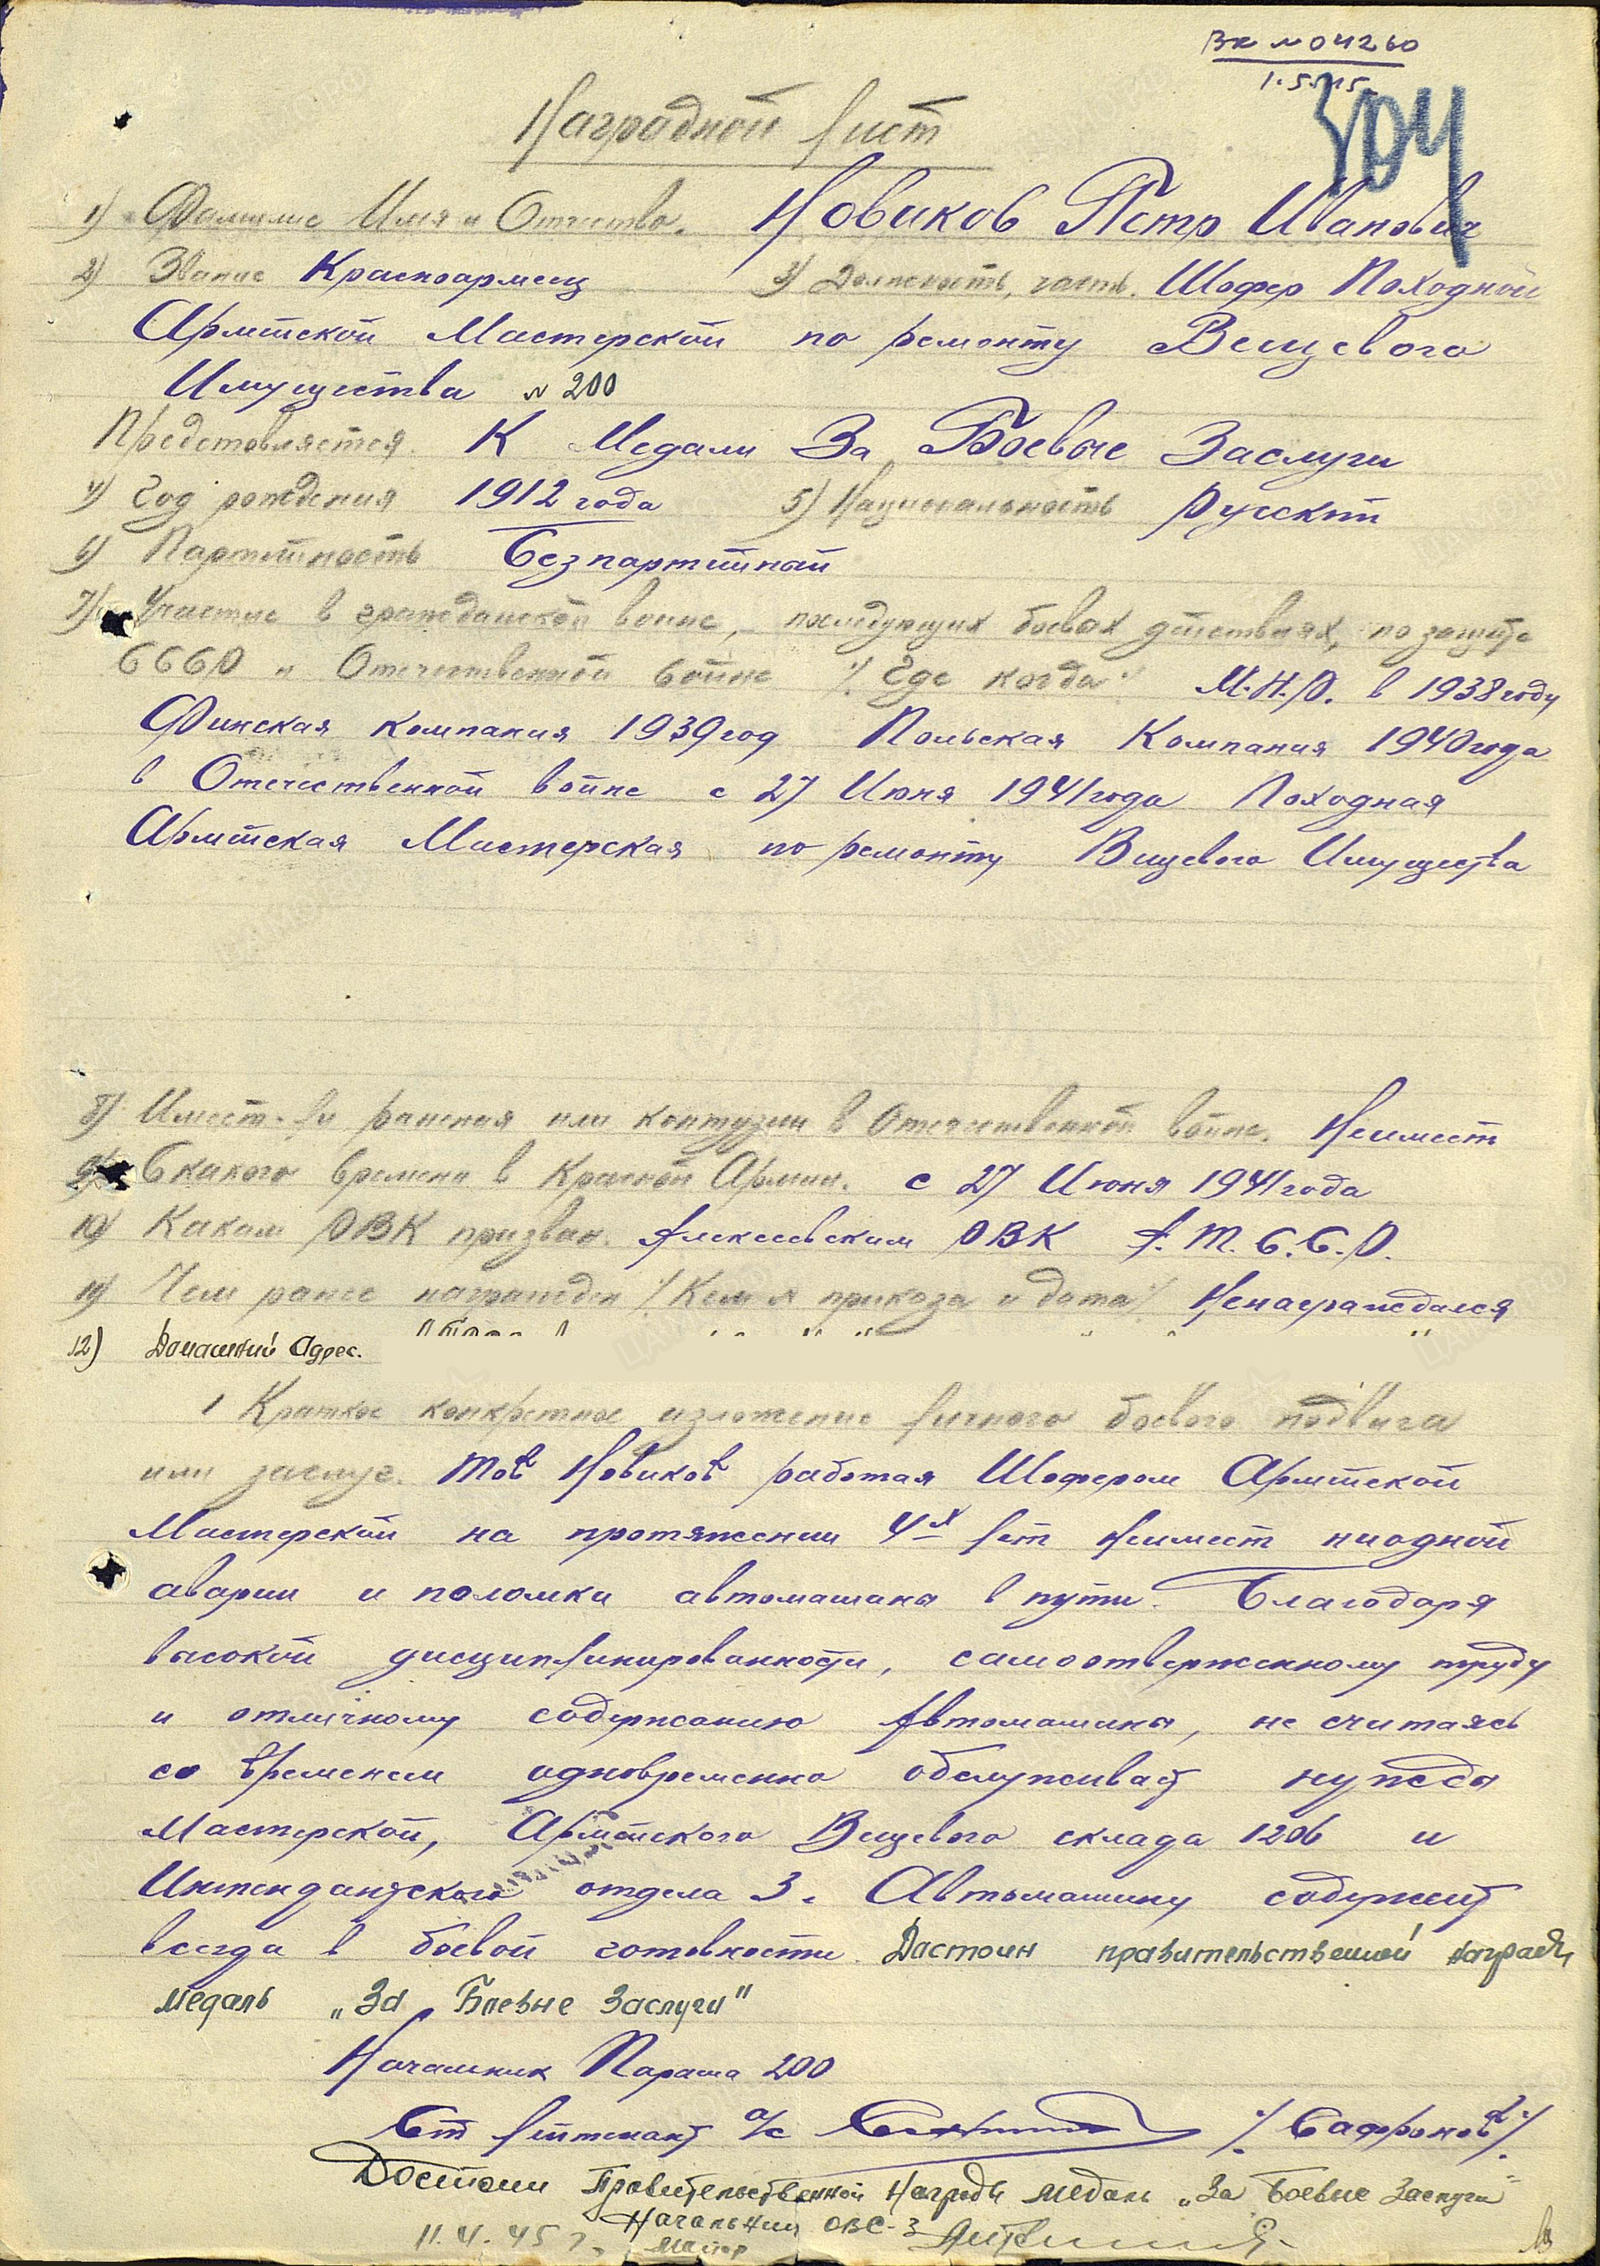 Вх №04260
1.5.45
304
Наградной лист
1) Фамилие Имя и Отчество. Новиков Петр Иванович
2) Звание Красноармеец 3) Должность, часть. Шофер Походной
Армейской Мастерской по ремонту Вещевого
Имущества № 200
Представляется К Медали За Боевые Заслуги
4) Год рождения 1912 года 5) Национальность Русский
6) Партийность Безпартийной
7) Участие в гражданской войне, последующих боевых действиях, по защите
СССР и Отечественной войне /. Где когда / М.Н.Р. в 1938 году
Финская компания 1939 год Польская Компания 1940 года
в Отечественной войне с 27 Июня 1941 года Походная
Армейская Мастерская по ремонту Вищевого Имущества
8) Имеет-ли ранения или контузии в Отечественной войне. Неимеет
9) С какого времени в Красной Армии. с 27 Июня 1941 года
10) Каким РВК призван. Алексеевским РВК А.Т.С.С.Р.
11) Чем ранее награжден /. Кем № приказа и дата / Ненаграждался
12) Домашний Адрес.
1 Краткое конкретное изложение личного боевого подвига
или заслуг. Тов Новиков работая Шофером Армейской
Мастерской на протяжении 4х лет Неимеет ниодной
аварии и поломки автомашина в пути. Благодаря
высокой дисциплинированности, самоотверженному труду
и отличному содержанию Автомашина, не считаясь
со временем одновременно обслуживает нужды
Мастерской, Армейского Вещевого склада 1206 и
Интендантского отдела 3. Автомашину содержит
всегда в боевой готовности. Достоин правительственной награды
медаль „За Боевые Заслуги"
Начальник Парама 200
Ст Лейтенант а/с /. Сафронов /.
Достоин Правительственной Награды медаль „За Боевые Заслуги"
Начальник ОВС-3
11.4.45 г. Майор